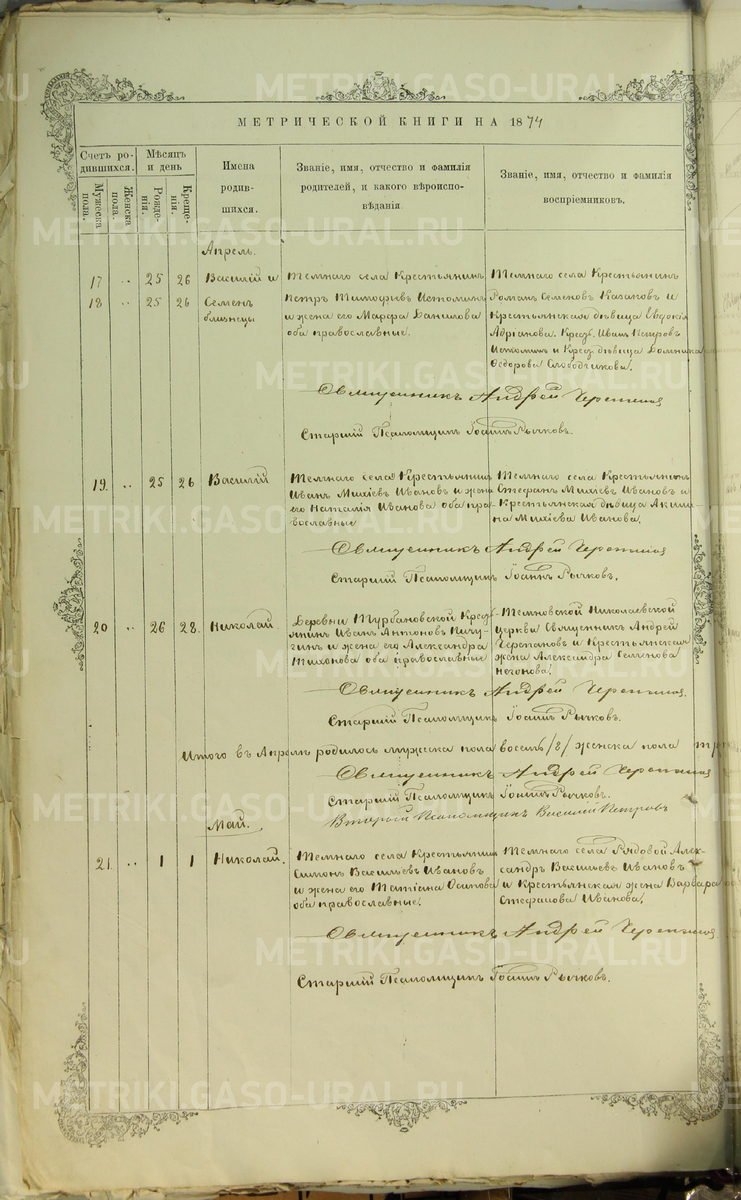 METRIKI.GASO-URAL.RU
МЕТРИЧЕСКОЙ КНИГИ НА 1874
Счетъ родившихся.
Мужеска пола.
Женска пола.
Мѣсяцъ и день
Рожденія.
Крещенія.
Имена родившихся.
Званіе, имя, отчество и фамилія родителей, и какого вѣроисповѣданія.
Званіе, имя, отчество и фамилія воспріемниковъ.
Апрель.
17 .. 25 26 Василій и
18 .. 25 26 Семенъ
близнецы
Темнаго села Крестьянинъ
Петръ Тимофѣевъ Истоминъ
и жена его Марфа Данилова
оба православные.
Темнаго села Крестьянинъ
Романъ Семеновъ Казаковъ и
Крестьянская дѣвица Евдокія
Адріанова. Крест. Иванъ Петровъ
Истоминъ и Крест. дѣвица Домника
Ѳедорова Слободчикова.
Священникъ Андрей Черепановъ
Старшій Псаломщикъ Іоаннъ Рычковъ.
19. .. 25 26 Василій
Темнаго села Крестьянинъ
Иванъ Михіевъ Ивановъ и жена
его Наталія Иванова оба пра-
вославные
Темнаго села Крестьянинъ
Стефанъ Михіевъ Ивановъ и
Крестьянская дѣвица Акили-
на Михіева Иванова.
Священникъ Андрей Черепановъ
Старшій Псаломщикъ Іоаннъ Рычковъ.
20 .. 26 28. Николай
Деревни Турбановской Крест-
янинъ Иванъ Антоновъ Пичу-
гинъ и жена его Александра
Тихонова оба православные
Темновской Николаевской
церкви Священникъ Андрей
Черепановъ и Крестьянская
жена Александра Семенова
Негонова.
Священникъ Андрей Черепановъ
Старшій Псаломщикъ Іоаннъ Рычковъ.
Итого въ Апрелѣ родилось мужеска пола восемь /8/ женска пола три
Священникъ Андрей Черепановъ
Старшій Псаломщикъ Іоаннъ Рычковъ.
Второй Псаломщикъ Василій Петровъ
Май.
21. .. 1 1 Николай.
Темнаго села Крестьянинъ
Симонъ Васильевъ Ивановъ
и жена его Татіана Осипова
оба православные.
Темнаго села Рядовой Алек-
сандръ Васильевъ Ивановъ
и Крестьянская жена Варвара
Стефанова Иванова.
Священникъ Андрей Черепановъ
Старшій Псаломщикъ Іоаннъ Рычковъ.